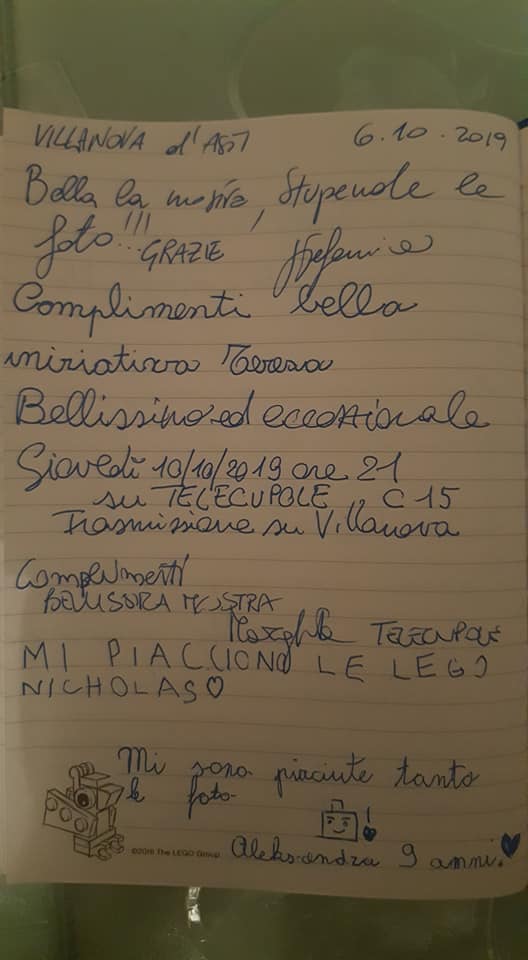 VILLANOVA d'ASTI 6.10.2019
Bella la mostra, Stupende le
foto!!! GRAZIE Stefania
Complimenti bella
iniziativa Teresa
Bellissimo ed eccezzionale
Giovedì 10/10/2019 ore 21
su TELECUPOLE, C 15
Trasmissione su Villanova
Complimenti
BELLISSIMA MOSTRA
Margherita TELECUPOLE
MI PIACCIONO LE LEGO
NICHOLAS♡
Mi sono piaciute tanto
le foto
!
©2018 The LEGO Group Aleksandra 9 anni!